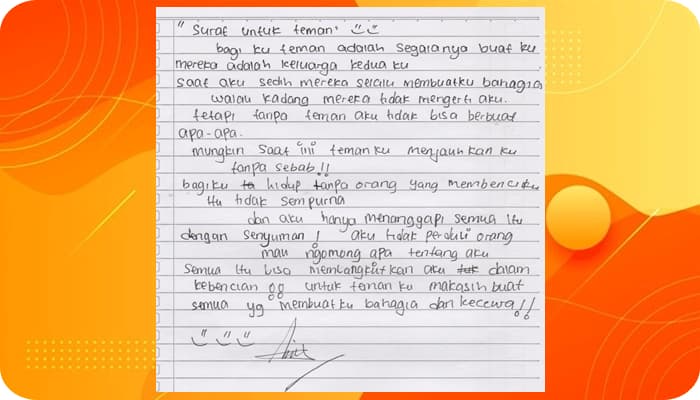 " Surat untuk teman"
bagi ku teman adalah segalanya buat ku
mereka adalah keluarga kedua ku
saat aku sedih mereka selalu membuatku bahagia
walau kadang mereka tidak mengerti aku.
tetapi tanpa teman aku tidak bisa berbuat
apa-apa.
mungkin saat ini temanku menjauhkan ku
tanpa sebab!!
bagiku hidup tanpa orang yang membenciku
itu tidak sempurna
dan aku hanya menanggapi semua itu
dengan senyuman! aku tidak perduli orang
mau ngomong apa tentang aku
semua itu bisa membangkitkan aku dalam
kebencian untuk teman ku makasih buat
semua yg membuatku bahagia dan kecewa!!